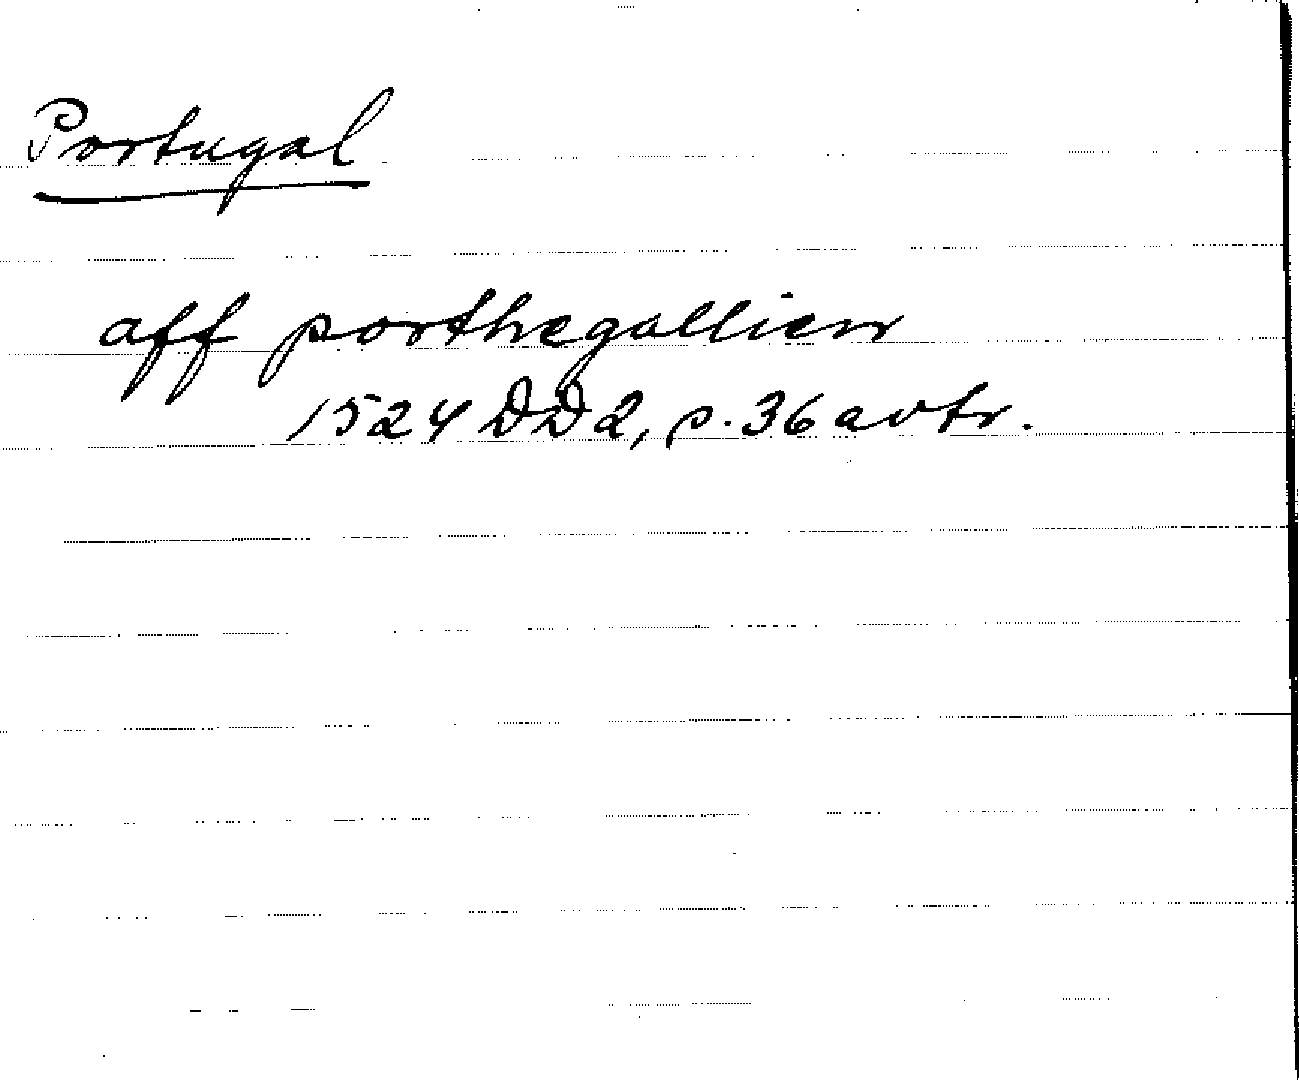 Portugal
aff porthegallien
1524 DD2, s. 36 avtr.